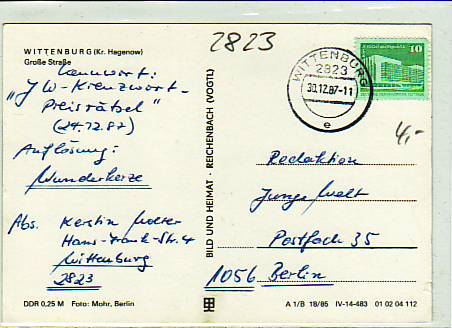 WITTENBURG (Kr. Hagenow)
Große Straße
2823
Kennwort:
"JW-Kreuzwort-
Preisrätsel"
(24.12.87)
Auflösung:
Wunderkerze
Abs. Kerstin Wolter
Hans-Frank-Str. 4
Wittenburg
2823
DDR 0,25 M Foto: Mohr, Berlin
BILD UND HEIMAT · REICHENBACH (VOGTL)
WITTENBURG
2823
30.12.87-11
e
10
4,-
Redaktion
Junge Welt
Postfach 35
1056 Berlin
A 1/B 18/85 IV-14-483 01 02 04 112